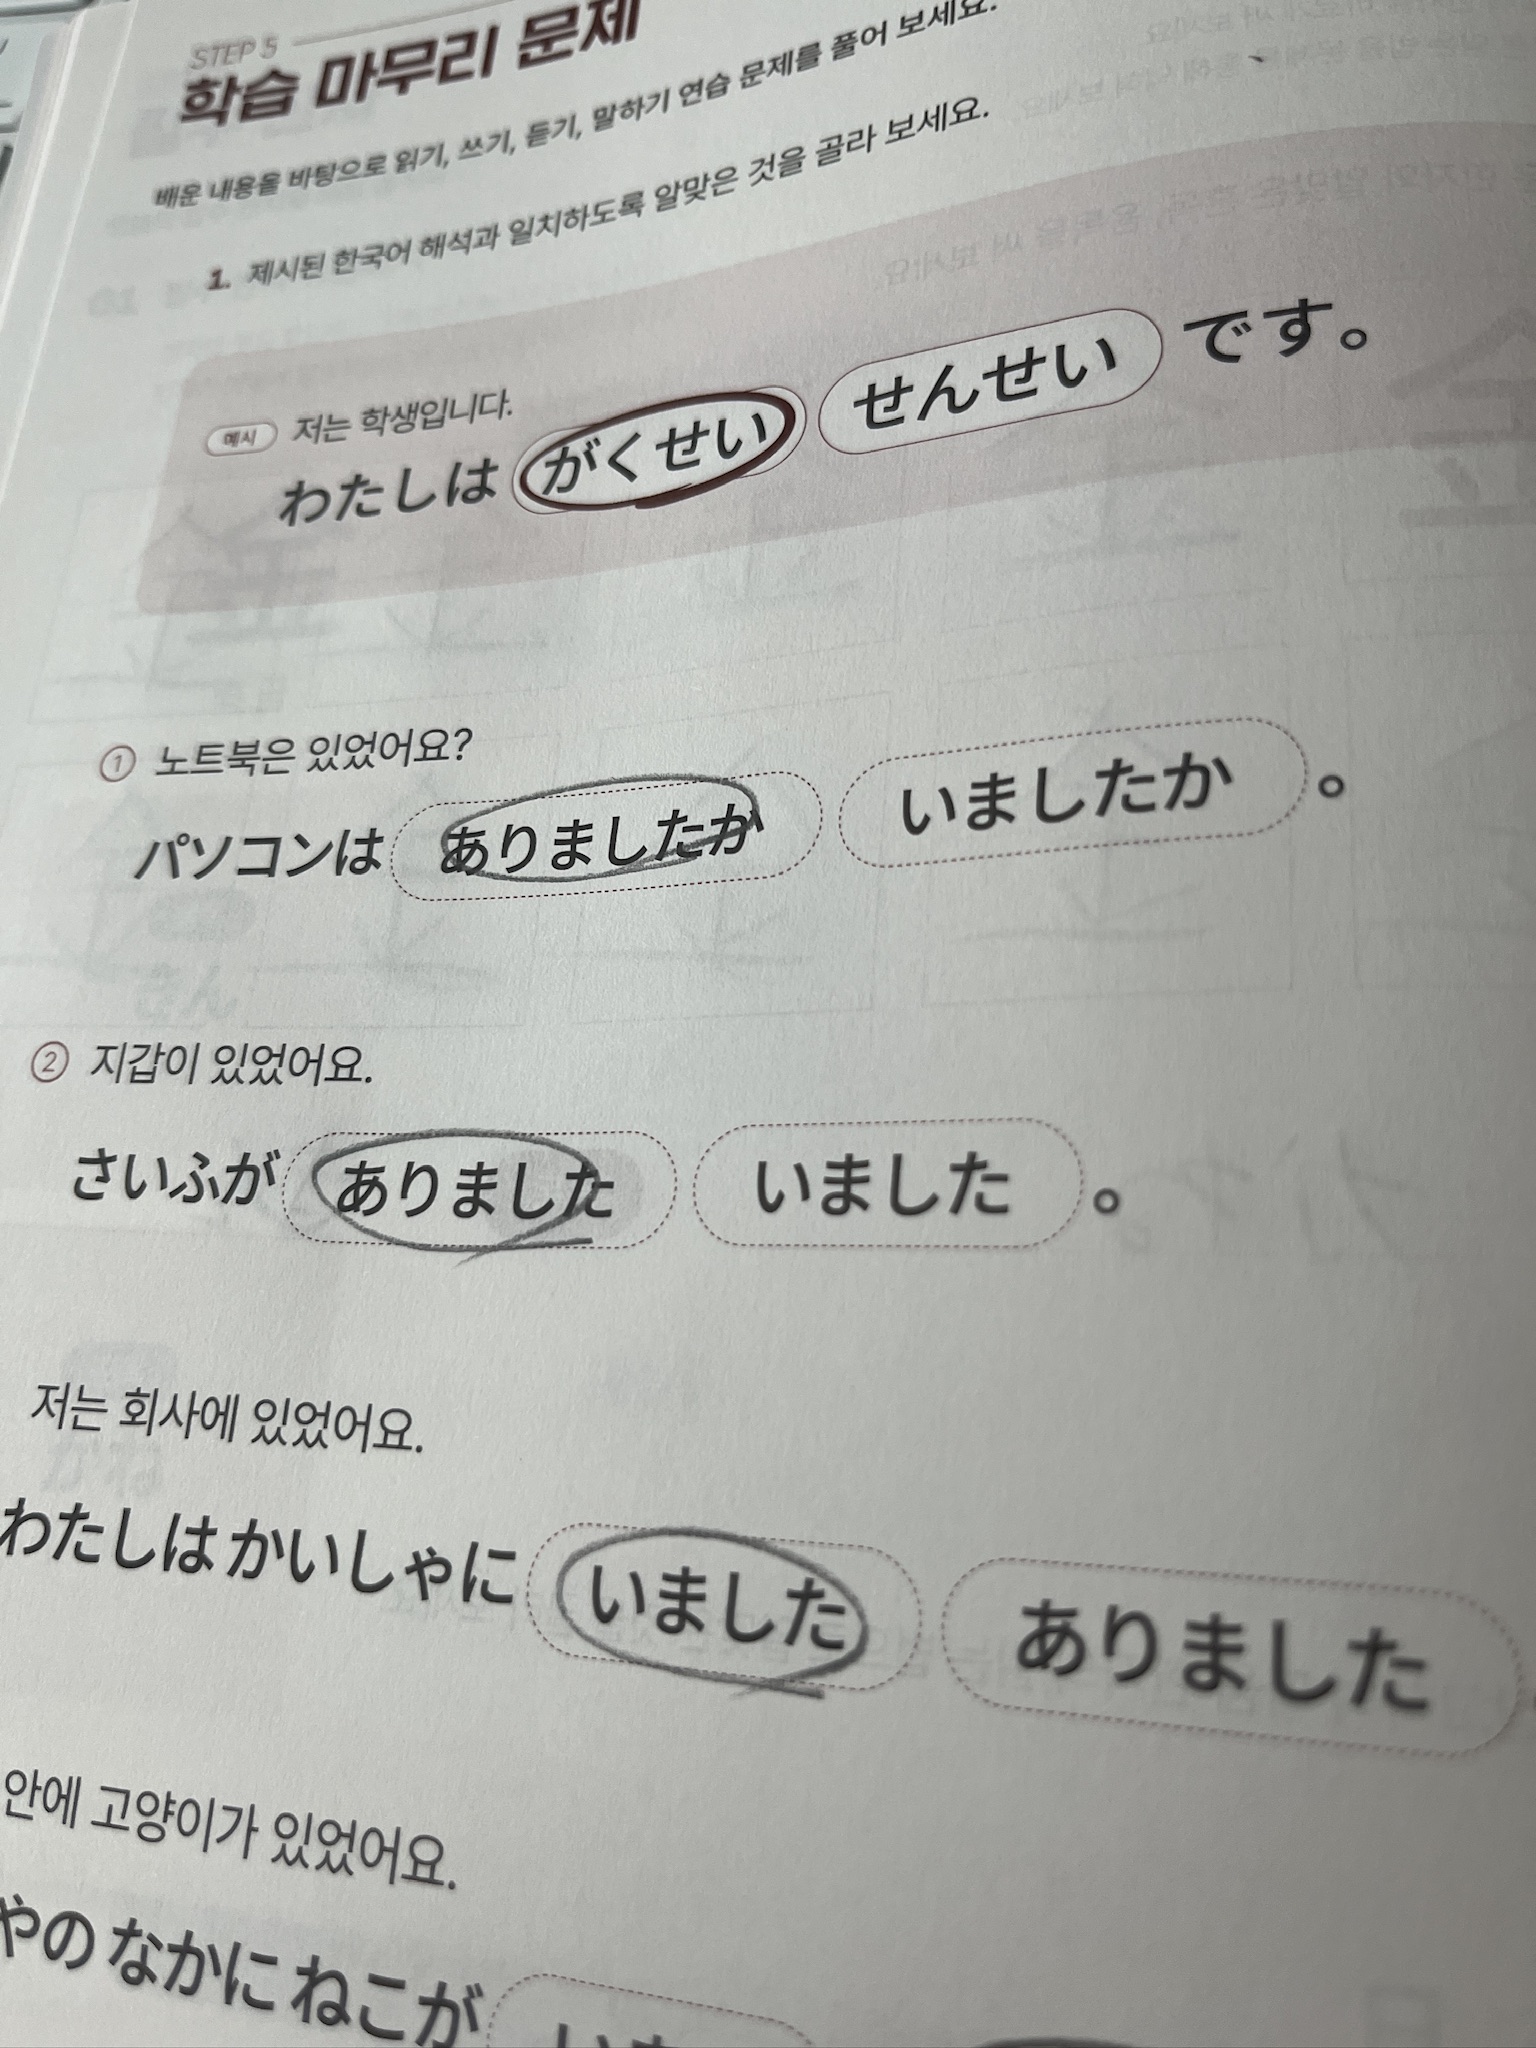 STEP 5
학습 마무리 문제
배운 내용을 바탕으로 읽기, 쓰기, 듣기, 말하기 연습 문제를 풀어 보세요.
1. 제시된 한국어 해석과 일치하도록 알맞은 것을 골라 보세요.
예시 저는 학생입니다.
わたしは がくせい せんせい です。
① 노트북은 있었어요?
パソコンは ありましたか いましたか 。
② 지갑이 있었어요.
さいふが ありました いました 。
저는 회사에 있었어요.
わたしは かいしゃに いました ありました
안에 고양이가 있었어요.
やの なかに ねこが